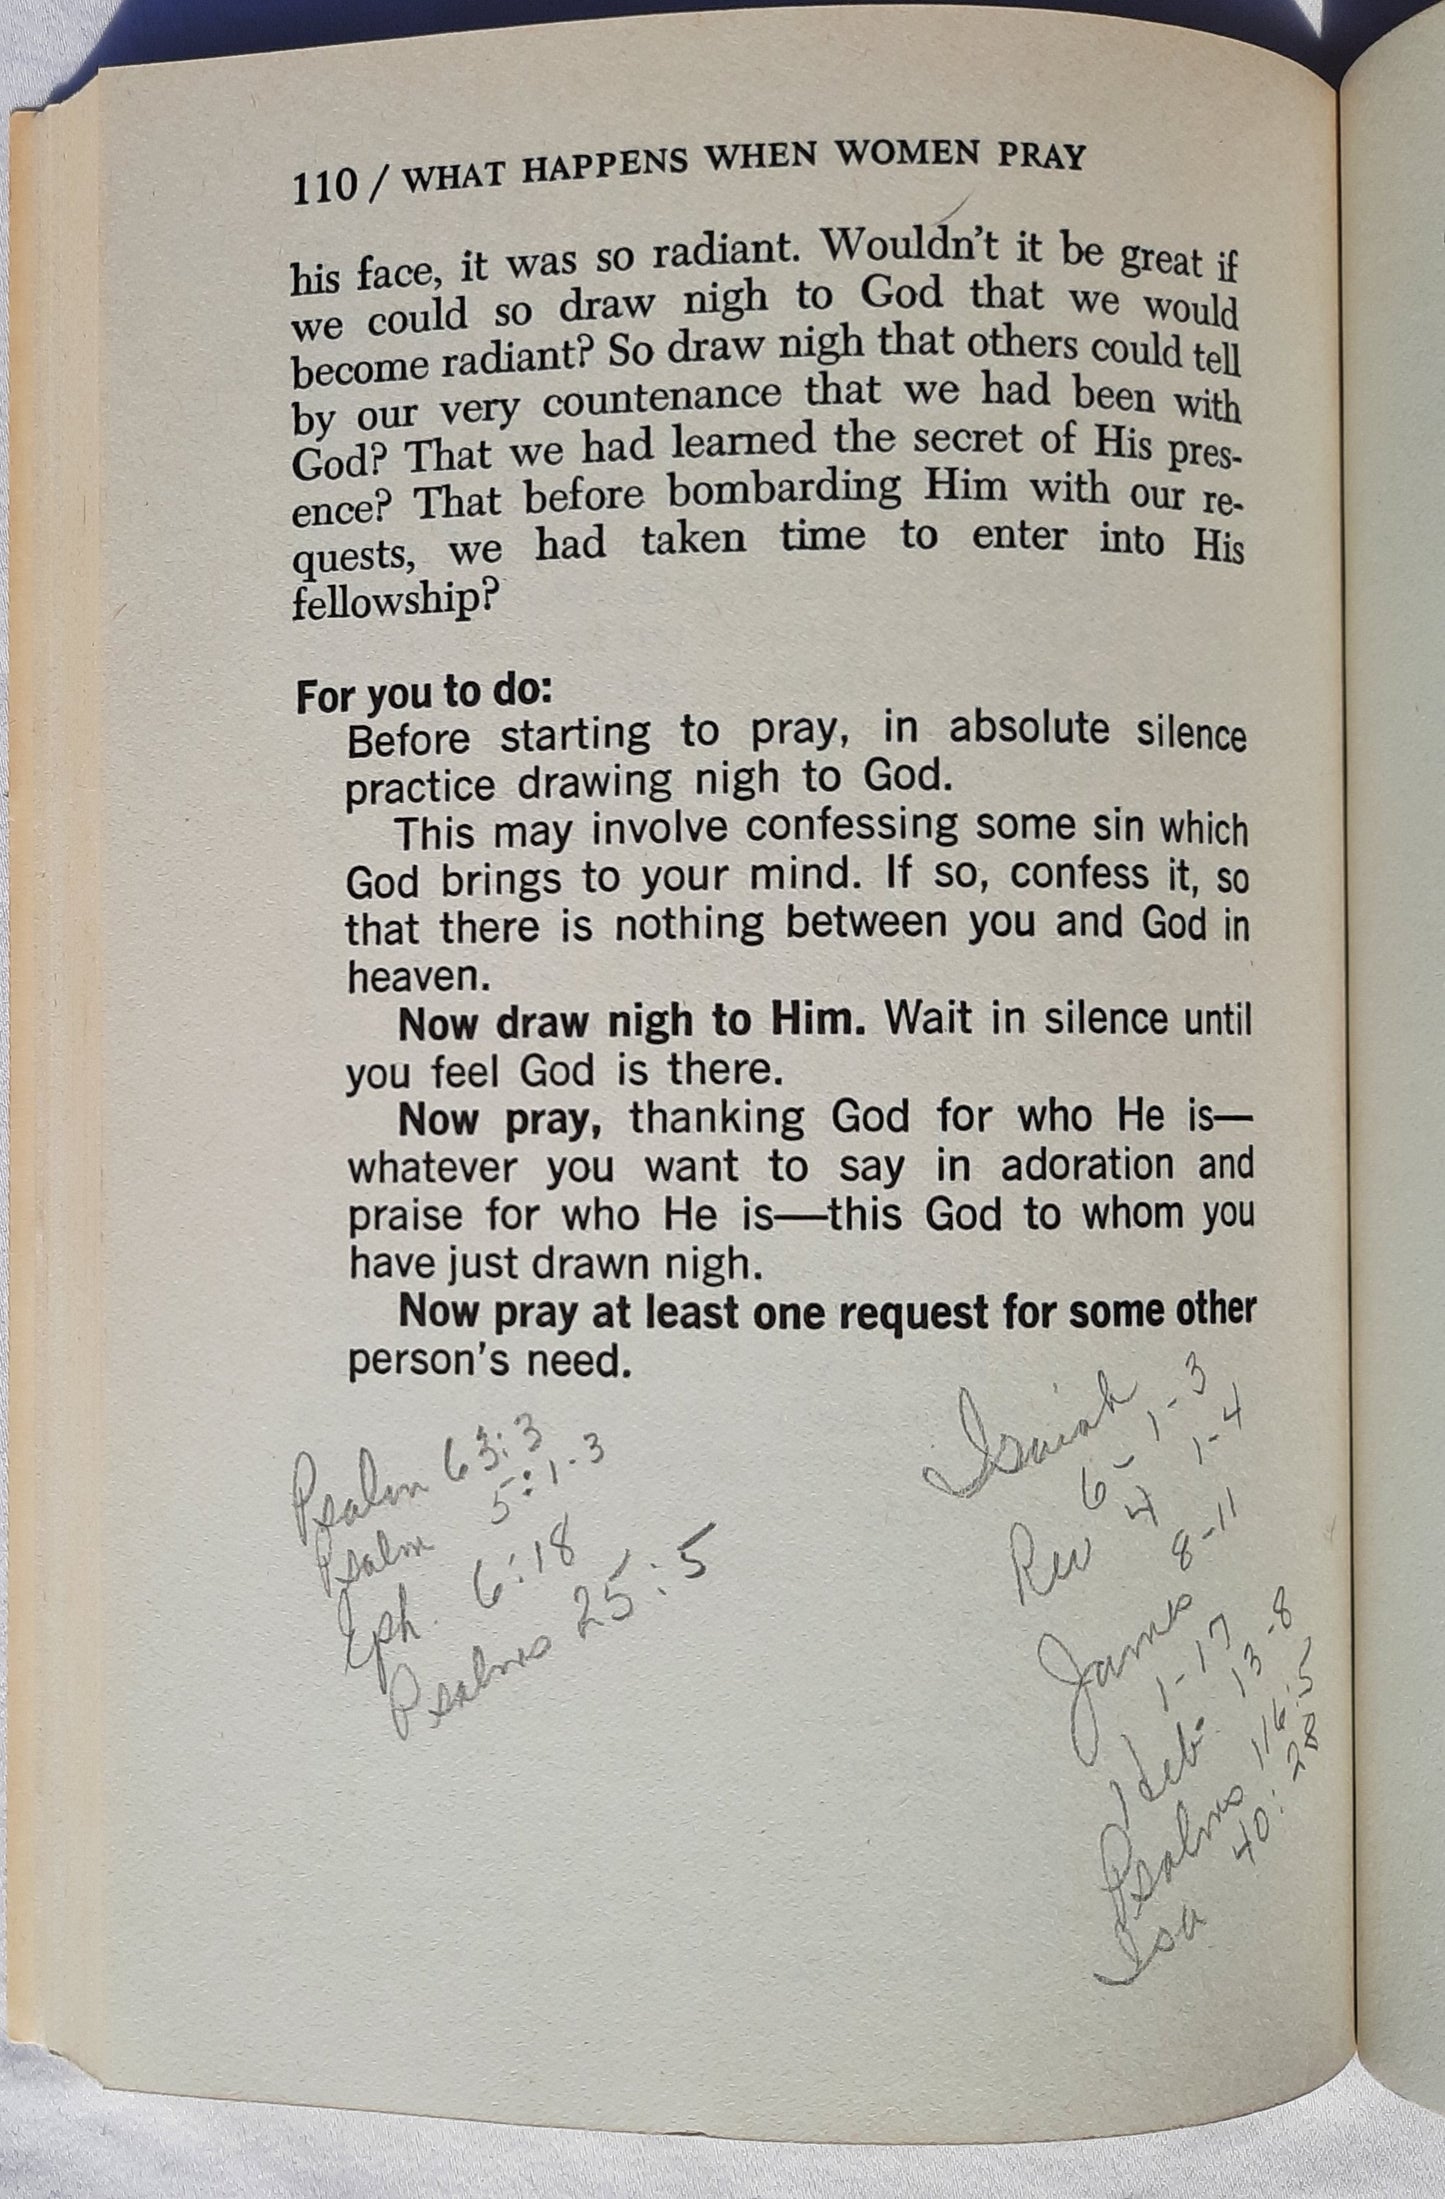 110 / WHAT HAPPENS WHEN WOMEN PRAY
his face, it was so radiant. Wouldn't it be great if
we could so draw nigh to God that we would
become radiant? So draw nigh that others could tell
by our very countenance that we had been with
God? That we had learned the secret of His pres-
ence? That before bombarding Him with our re-
quests, we had taken time to enter into His
fellowship?
For you to do:
Before starting to pray, in absolute silence
practice drawing nigh to God.
This may involve confessing some sin which
God brings to your mind. If so, confess it, so
that there is nothing between you and God in
heaven.
Now draw nigh to Him. Wait in silence until
you feel God is there.
Now pray, thanking God for who He is—
whatever you want to say in adoration and
praise for who He is—this God to whom you
have just drawn nigh.
Now pray at least one request for some other
person's need.
Psalm 63:3
Psalm 5:1-3
Eph. 6:18
Psalms 25:5
Isaiah
6- 1-3
Rev 4 1-4
8-11
James
1-17
Heb. 13-8
Psalms 116:5
Isa 40:28